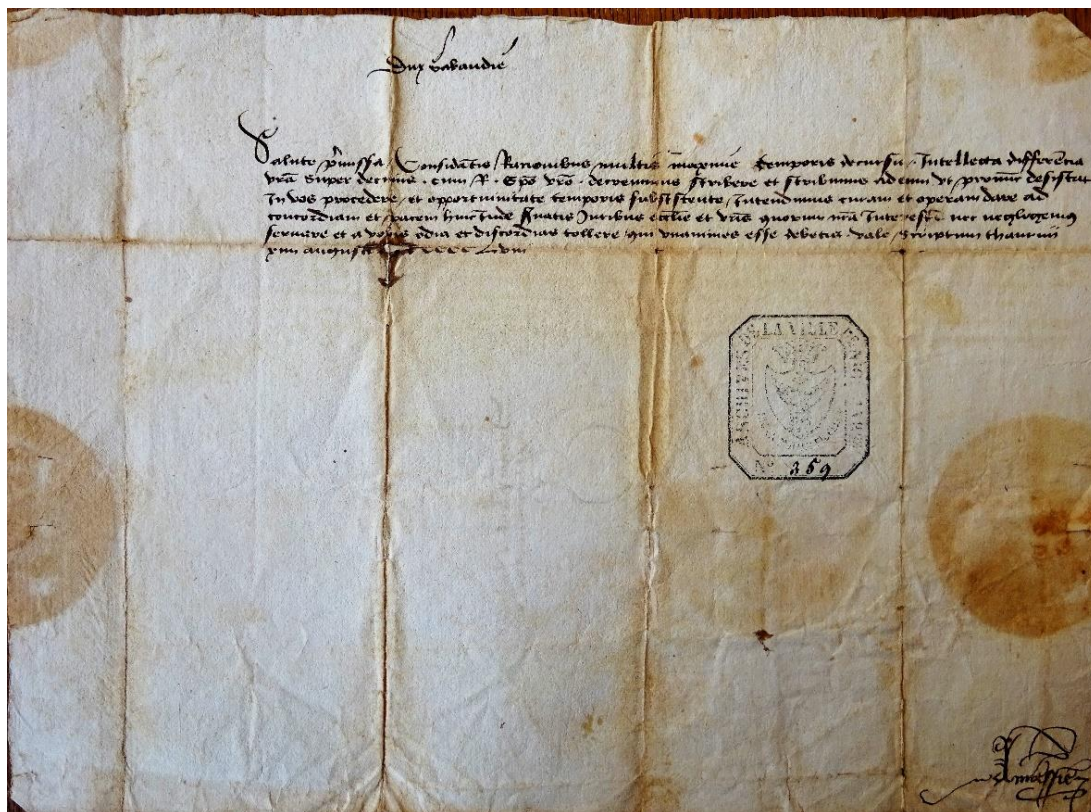 Dux Sabaudie
Salute p'missa, Considatis Rationibus multis maxime temporis decursu, Intellecta differencia
vrã super decimis cum R. Epõ vrõ decrevimus scribere et scribimus eidem ut pronunc desistat
In vos procedere et opportunitate temporis subsistente, Intendimus curam et operam dare ad
concordiam et pacem hincinde Juribus ecclie et vris quorum nrã Interest nec negligemus
servare et a vobis odia et discordias tollere qui unanimes esse debetis vale Scriptum
xiiii augusti
ARCHIVES DE LA VILLE
Nº 359